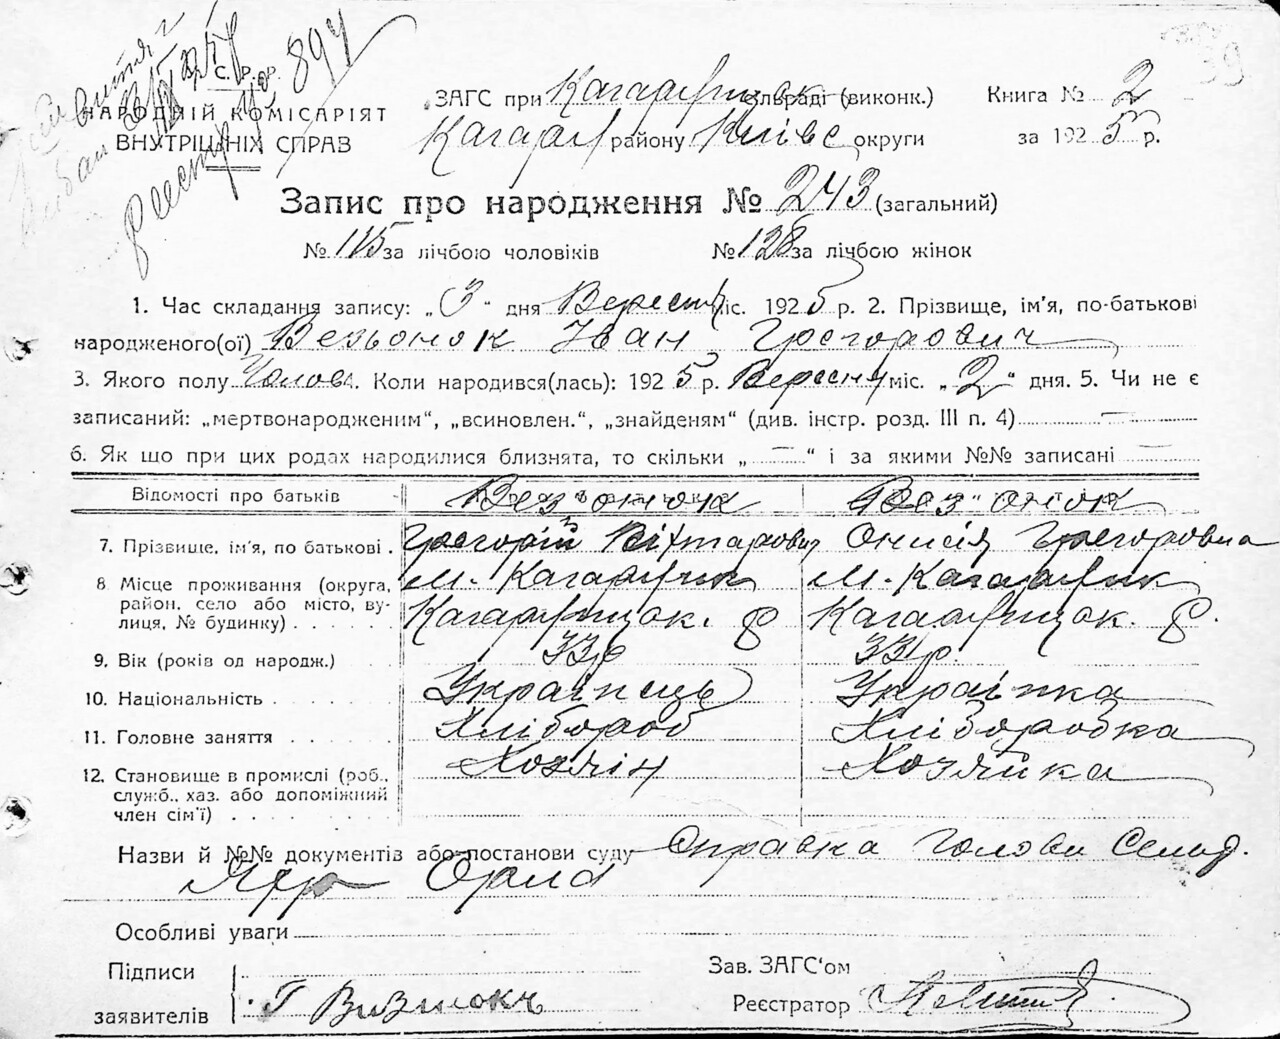 39
С. Р. Р.
НАРОДНІЙ КОМІСАРІЯТ
ВНУТРІШНІХ СПРАВ
реестр № 897
ЗАГС при Кагарлицьк сільраді (виконк.) Книга № 2
Кагарл району Київс округи за 1925 р.
Запис про народження № 243 (загальний)
№ 115 за лічбою чоловіків № 128 за лічбою жінок
1. Час складання запису: „3" дня Вересня міс. 1925 р. 2. Прізвище, ім'я, по-батькові
народженого(ої) Везьонок Іван Грегорович
3. Якого полу Чолов 4. Коли народився(лась): 1925 р. Вересня міс. „2" дня. 5. Чи не є
записаний: „мертвонародженим", „всиновлен.", „знайденям" (див. інстр. розд. III п. 4) —
6. Як що при цих родах народилися близнята, то скільки „ — " і за якими №№ записані —
Відомості про батьків Без"оночк Без"онок
7. Прізвище, ім'я, по батькові . Грегорій Віхтарович Онисія Грегоровна
8 Місце проживання (округа, м. Кагарлик м. Кагарлик
район, село або місто, ву- Кагарлицьк. р Кагарлицьк. р.
лиця, № будинку) . . . . .
9. Вік (років од народж.) . . 33р 33р.
10. Національність . . . . . Українець Українка
11. Головне заняття . . . . . Хлібороб Хліборобка
12. Становище в промислі (роб., Хозяін Хозяйка
служб., хаз. або допоміжний
член сім'ї) . . . . . . . .
Назви й №№ документів або постанови суду Справка Голови Сельр.
Орла
Особливі уваги
Підписи Зав. ЗАГС'ом
заявителів Г Визиюкъ Реєстратор